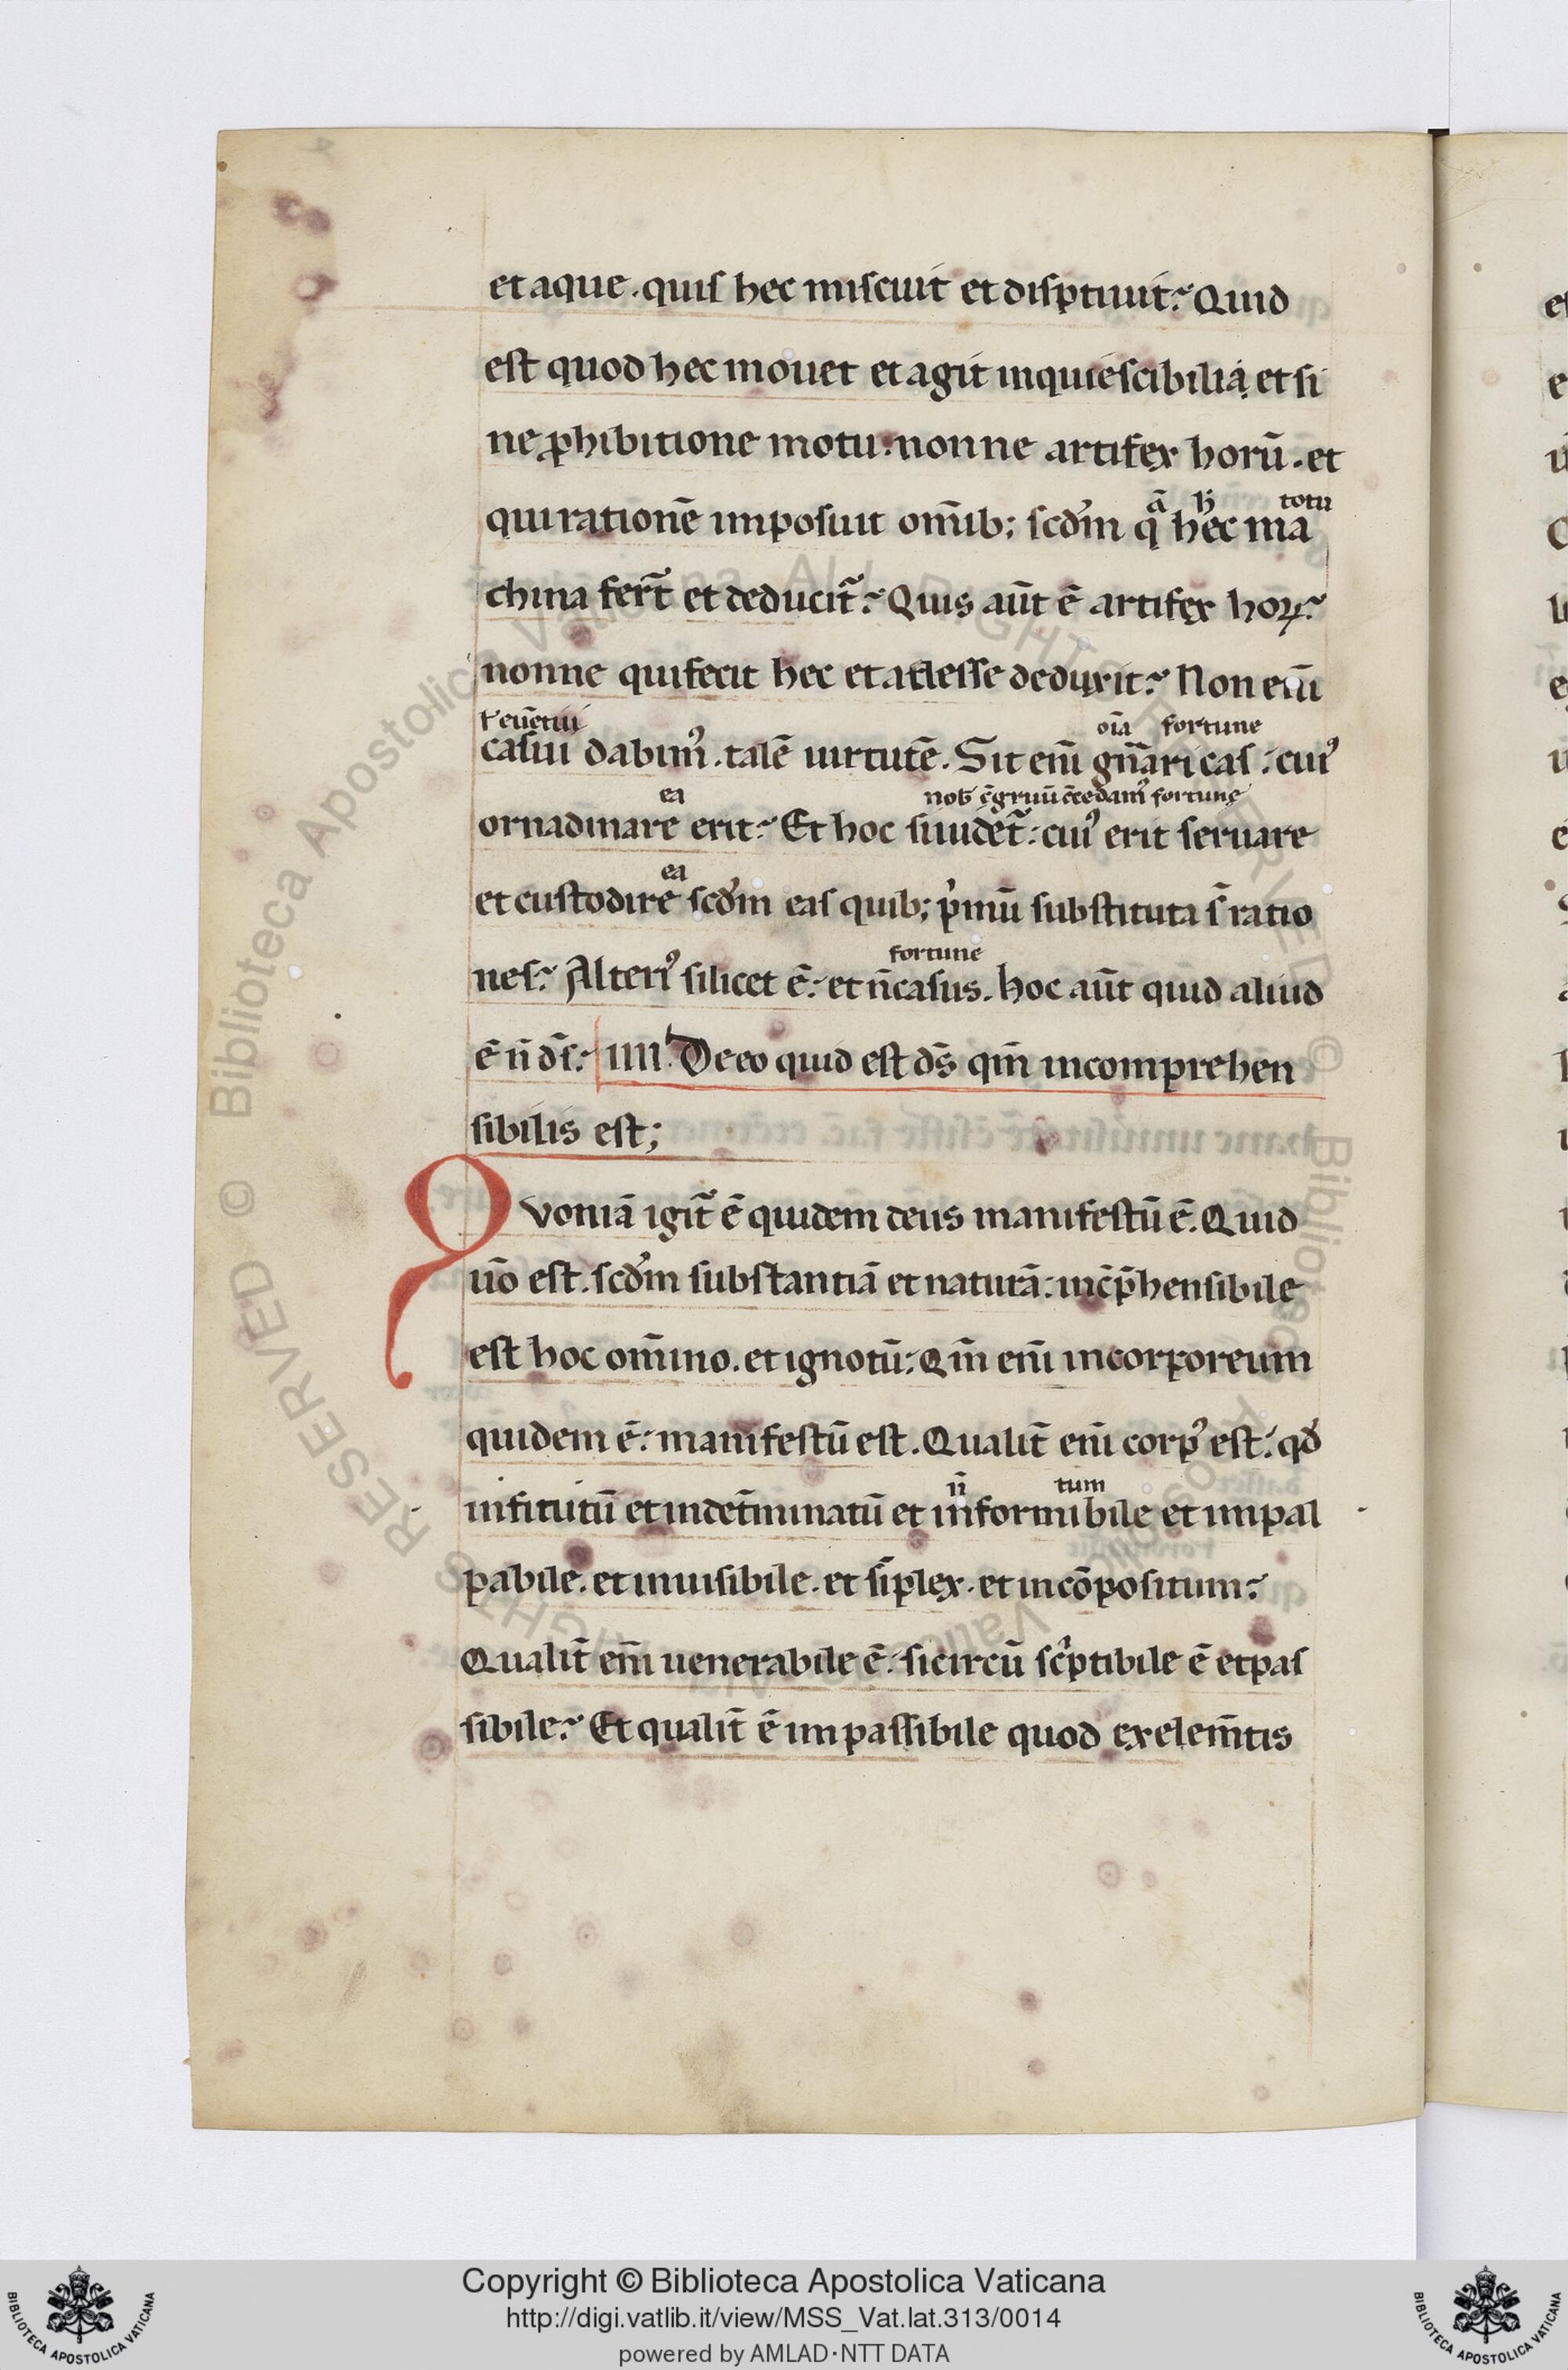 et aque. quis hec miscuit et disptiuit? Quid
est quod hec mouet et agit inquiescibilia et si
ne ꝓhibitione motu. nonne artifex horū. et
ā h̄ totū
qui rationē imposuit om̄ib; scd̓m q̄ hec ma
china fert̄ et deducit̄? Quis aūt ē artifex hoꝝ?
nonne qui fecit hec et ad esse deduxit? Non eni̅
ł euētui oīa fortune
casui dabim᾽. talē uirtutē. Sit eni̅ gn̄ari cas. cui᾽
ea fortune
ornadinare erit? Et hoc si uidet̄: cui᾽ erit seruare
ea
et custodire scd̓m eas quib; p̓mū substituta s̄ ratio
fortune
nes? Alteri᾽ silicet ē. et n̄ casus. hoc aūt quid aliud
ē n̄ ds̄? IIII. De eo quid est ds̄ qm̄ incomprehen
sibilis est;
Quoniā igit̄ ē quidem deus manifestū ē. Quid
u̅o est. scd̓m substantiā et naturā: inc̄p̄hensibile
est hoc om̄ino. et ignotū. Qm̄ eni̅ incorporeum
quidem ē. manifestū est. Qualit̄ eni̅ corp᾽ est. qđ
n̄ tum
infinitū et indet̄minatū et informibile et impal
pabile. et inuisibile. et si̅plex. et incōpositum?
Qualit̄ eni̅ uenerabile ē. si circū sc̓ptibile ē et pas
sibile? Et qualit̄ ē impassibile quod ex elem̄tis
Copyright © Biblioteca Apostolica Vaticana
http://digi.vatlib.it/view/MSS_Vat.lat.313/0014
powered by AMLAD·NTT DATA
BIBLIOTECA APOSTOLICA VATICANA
BIBLIOTECA APOSTOLICA VATICANA